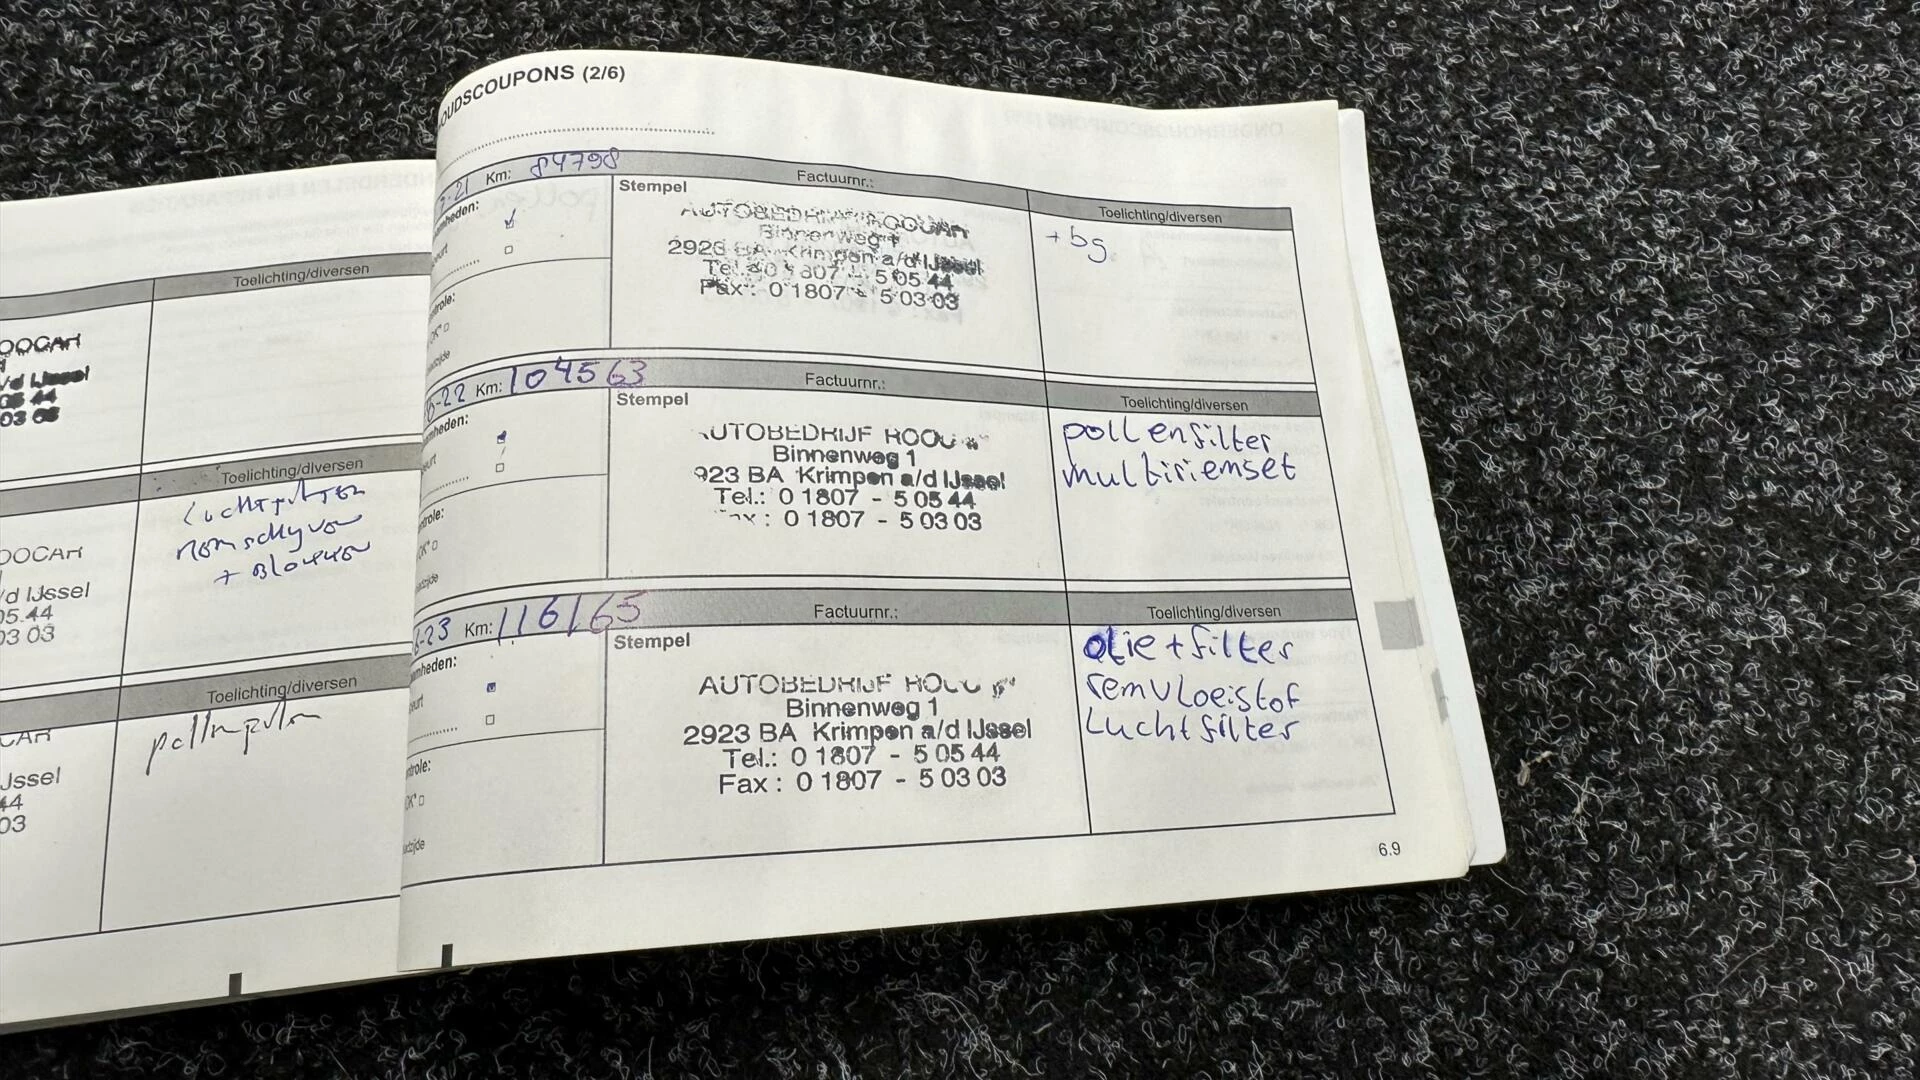 Toelichting/diversen
OOCAR
/d IJssel
05 44
03 03
Toelichting/diversen
Luchtfilter
remschyven
+ Blokken
OOCAR
/d IJssel
05.44
03 03
Toelichting/diversen
pollenfilter
CAR
IJssel
44
03
OUDSCOUPONS (2/6)
-21 Km: 84798
Factuurnr.:
Toelichting/diversen
mheden:
eurt
ntrole:
OK*
adzijde
Stempel
AUTOBEDRIJF ROOCAR
Binnenweg 1
2923 BA Krimpen a/d IJssel
Tel.: 0 1807 - 5 05 44
Fax : 0 1807 - 5 03 03
+ bg
-22 Km: 104563
Factuurnr.:
Toelichting/diversen
amheden:
eurt
trole:
OK*
adzijde
Stempel
AUTOBEDRIJF ROOC
Binnenweg 1
923 BA Krimpen a/d IJssel
Tel.: 0 1807 - 5 05 44
ax : 0 1807 - 5 03 03
pollenfilter
multiriemset
6-23 Km: 116165
Factuurnr.:
Toelichting/diversen
mheden:
eurt
ntrole:
OK*
adzijde
Stempel
AUTOBEDRIJF ROOC
Binnenweg 1
2923 BA Krimpen a/d IJssel
Tel.: 0 1807 - 5 05 44
Fax : 0 1807 - 5 03 03
olie + filter
remvloeistof
Luchtfilter
6.9